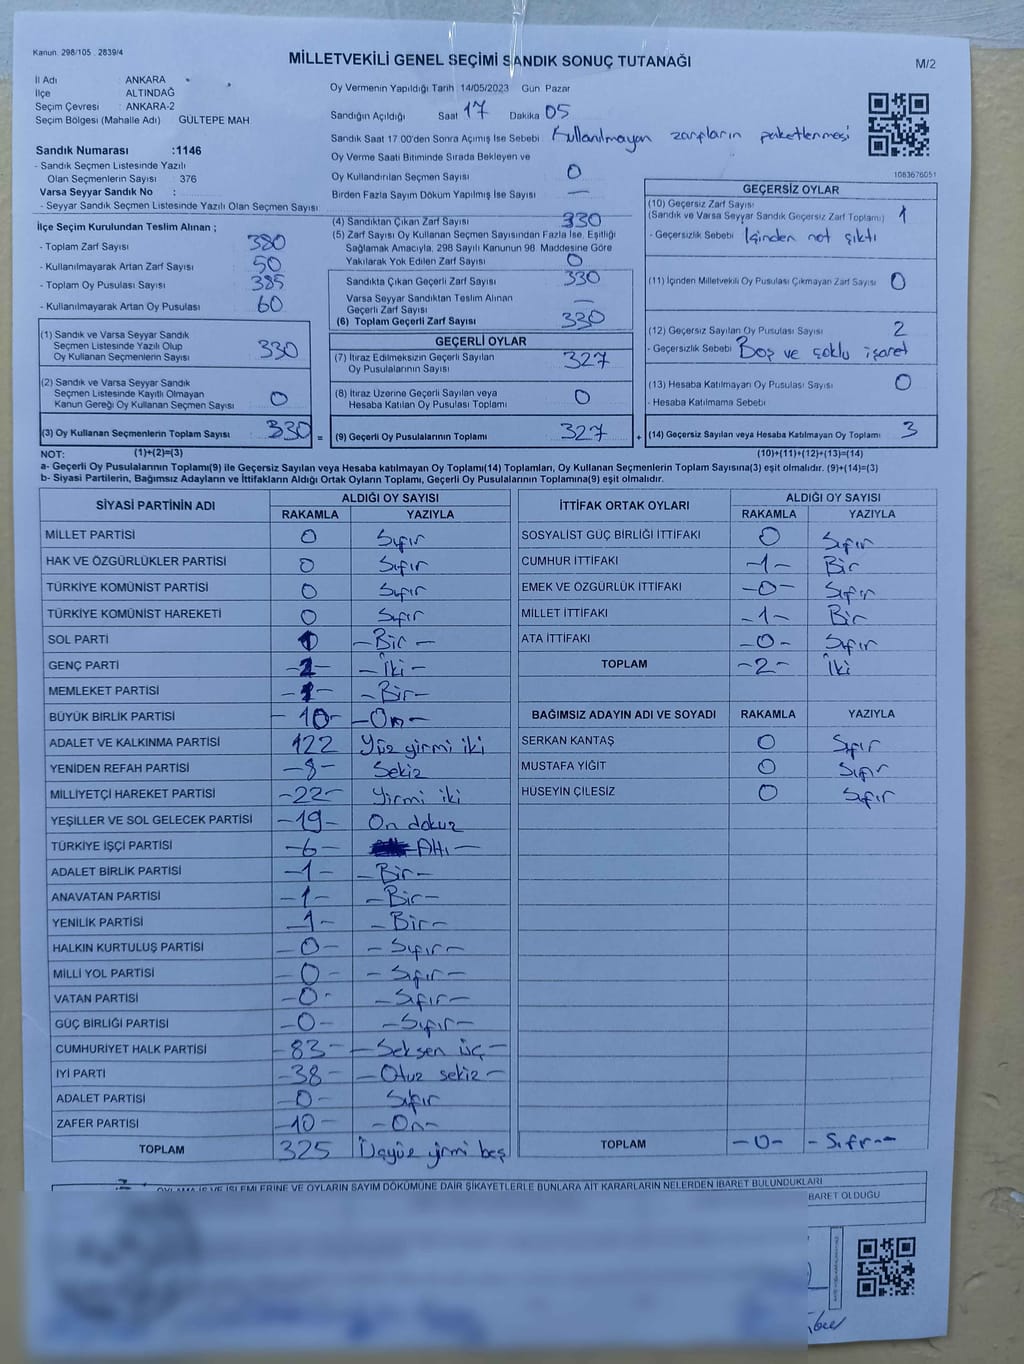 Kanun 298/105 . 2839/4
MİLLETVEKİLİ GENEL SEÇİMİ SANDIK SONUÇ TUTANAĞI
M/2
İl Adı : ANKARA
İlçe : ALTINDAĞ
Seçim Çevresi : ANKARA-2
Seçim Bölgesi (Mahalle Adı) GÜLTEPE MAH
Sandık Numarası :1146
- Sandık Seçmen Listesinde Yazılı
Olan Seçmenlerin Sayısı : 376
Varsa Seyyar Sandık No :
- Seyyar Sandık Seçmen Listesinde Yazılı Olan Seçmen Sayısı
Oy Vermenin Yapıldığı Tarih 14/05/2023 Gün Pazar
Sandığın Açıldığı Saat 17 Dakika 05
Sandık Saat 17 00'den Sonra Açımış İse Sebebi Kullanılmayan zarfların paketlenmesi
Oy Verme Saati Bitiminde Sırada Bekleyen ve
Oy Kullandırılan Seçmen Sayısı 0
Birden Fazla Sayım Döküm Yapılmış İse Sayısı —
1083676051
İlçe Seçim Kurulundan Teslim Alınan ;
- Toplam Zarf Sayısı 380
- Kullanılmayarak Artan Zarf Sayısı 50
- Toplam Oy Pusulası Sayısı 385
- Kullanılmayarak Artan Oy Pusulası 60
(1) Sandık ve Varsa Seyyar Sandık
Seçmen Listesinde Yazılı Olup
Oy Kullanan Seçmenlerin Sayısı 330
(2) Sandık ve Varsa Seyyar Sandık
Seçmen Listesinde Kayıtlı Olmayan
Kanun Gereği Oy Kullanan Seçmen Sayısı 0
(3) Oy Kullanan Seçmenlerin Toplam Sayısı 330 =
(4) Sandıktan Çıkan Zarf Sayısı 330
(5) Zarf Sayısı Oy Kullanan Seçmen Sayısından Fazla İse, Eşitliği
Sağlamak Amacıyla, 298 Sayılı Kanunun 98 Maddesine Göre
Yakılarak Yok Edilen Zarf Sayısı 0
Sandıkta Çıkan Geçerli Zarf Sayısı 330
Varsa Seyyar Sandıktan Teslim Alınan
Geçerli Zarf Sayısı —
(6) Toplam Geçerli Zarf Sayısı 330
GEÇERLİ OYLAR
(7) İtiraz Edilmeksizin Geçerli Sayılan
Oy Pusulalarının Sayısı 327
(8) İtiraz Üzerine Geçerli Sayılan veya
Hesaba Katılan Oy Pusulası Toplamı 0
(9) Geçerli Oy Pusulalarının Toplamı 327 +
GEÇERSİZ OYLAR
(10) Geçersiz Zarf Sayısı
(Sandık ve Varsa Seyyar Sandık Geçersiz Zarf Toplamı) 1
- Geçersizlik Sebebi İçinden not çıktı
(11) İçinden Milletvekili Oy Pusulası Çıkmayan Zarf Sayısı 0
(12) Geçersiz Sayılan Oy Pusulası Sayısı 2
- Geçersizlik Sebebi Boş ve çoklu işaret
(13) Hesaba Katılmayan Oy Pusulası Sayısı 0
- Hesaba Katılmama Sebebi
(14) Geçersiz Sayılan veya Hesaba Katılmayan Oy Toplamı 3
NOT: (1)+(2)=(3) (10)+(11)+(12)+(13)=(14)
a- Geçerli Oy Pusulalarının Toplamı(9) ile Geçersiz Sayılan veya Hesaba katılmayan Oy Toplamı(14) Toplamları, Oy Kullanan Seçmenlerin Toplam Sayısına(3) eşit olmalıdır. (9)+(14)=(3)
b- Siyasi Partilerin, Bağımsız Adayların ve İttifakların Aldığı Ortak Oyların Toplamı, Geçerli Oy Pusulalarının Toplamına(9) eşit olmalıdır.
SİYASİ PARTİNİN ADI ALDIĞI OY SAYISI
RAKAMLA YAZIYLA
MİLLET PARTİSİ 0 Sıfır
HAK VE ÖZGÜRLÜKLER PARTİSİ 0 Sıfır
TÜRKİYE KOMÜNİST PARTİSİ 0 Sıfır
TÜRKİYE KOMÜNİST HAREKETİ 0 Sıfır
SOL PARTİ 1 -Bir-
GENÇ PARTİ -2- -İki-
MEMLEKET PARTİSİ -1- -Bir-
BÜYÜK BİRLİK PARTİSİ -10- -On-
ADALET VE KALKINMA PARTİSİ 122 Yüz yirmi iki
YENİDEN REFAH PARTİSİ -8- Sekiz
MİLLİYETÇİ HAREKET PARTİSİ -22- Yirmi iki
YEŞİLLER VE SOL GELECEK PARTİSİ -19- On dokuz
TÜRKİYE İŞÇİ PARTİSİ -6- -Altı-
ADALET BİRLİK PARTİSİ -1- -Bir-
ANAVATAN PARTİSİ -1- -Bir-
YENİLİK PARTİSİ -1- -Bir-
HALKIN KURTULUŞ PARTİSİ -0- -Sıfır-
MİLLİ YOL PARTİSİ -0- -Sıfır-
VATAN PARTİSİ -0- -Sıfır-
GÜÇ BİRLİĞİ PARTİSİ -0- -Sıfır-
CUMHURİYET HALK PARTİSİ -83- -Seksen üç-
İYİ PARTİ -38- -Otuz sekiz-
ADALET PARTİSİ -0- Sıfır
ZAFER PARTİSİ -10- -On-
TOPLAM 325 Üçyüz yirmi beş
İTTİFAK ORTAK OYLARI ALDIĞI OY SAYISI
RAKAMLA YAZIYLA
SOSYALİST GÜÇ BİRLİĞİ İTTİFAKI 0 Sıfır
CUMHUR İTTİFAKI -1- Bir
EMEK VE ÖZGÜRLÜK İTTİFAKI -0- Sıfır
MİLLET İTTİFAKI -1- Bir
ATA İTTİFAKI -0- Sıfır
TOPLAM -2- İki
BAĞIMSIZ ADAYIN ADI VE SOYADI RAKAMLA YAZIYLA
SERKAN KANTAŞ 0 Sıfır
MUSTAFA YİĞİT 0 Sıfır
HÜSEYİN ÇİLESİZ 0 Sıfır
TOPLAM -0- -Sıfır-
OYLAMA İŞ VE İŞLEMLERİNE VE OYLARIN SAYIM DÖKÜMÜNE DAİR ŞİKAYETLERLE BUNLARA AİT KARARLARIN NELERDEN İBARET BULUNDUKLARI
İBARET OLDUĞU